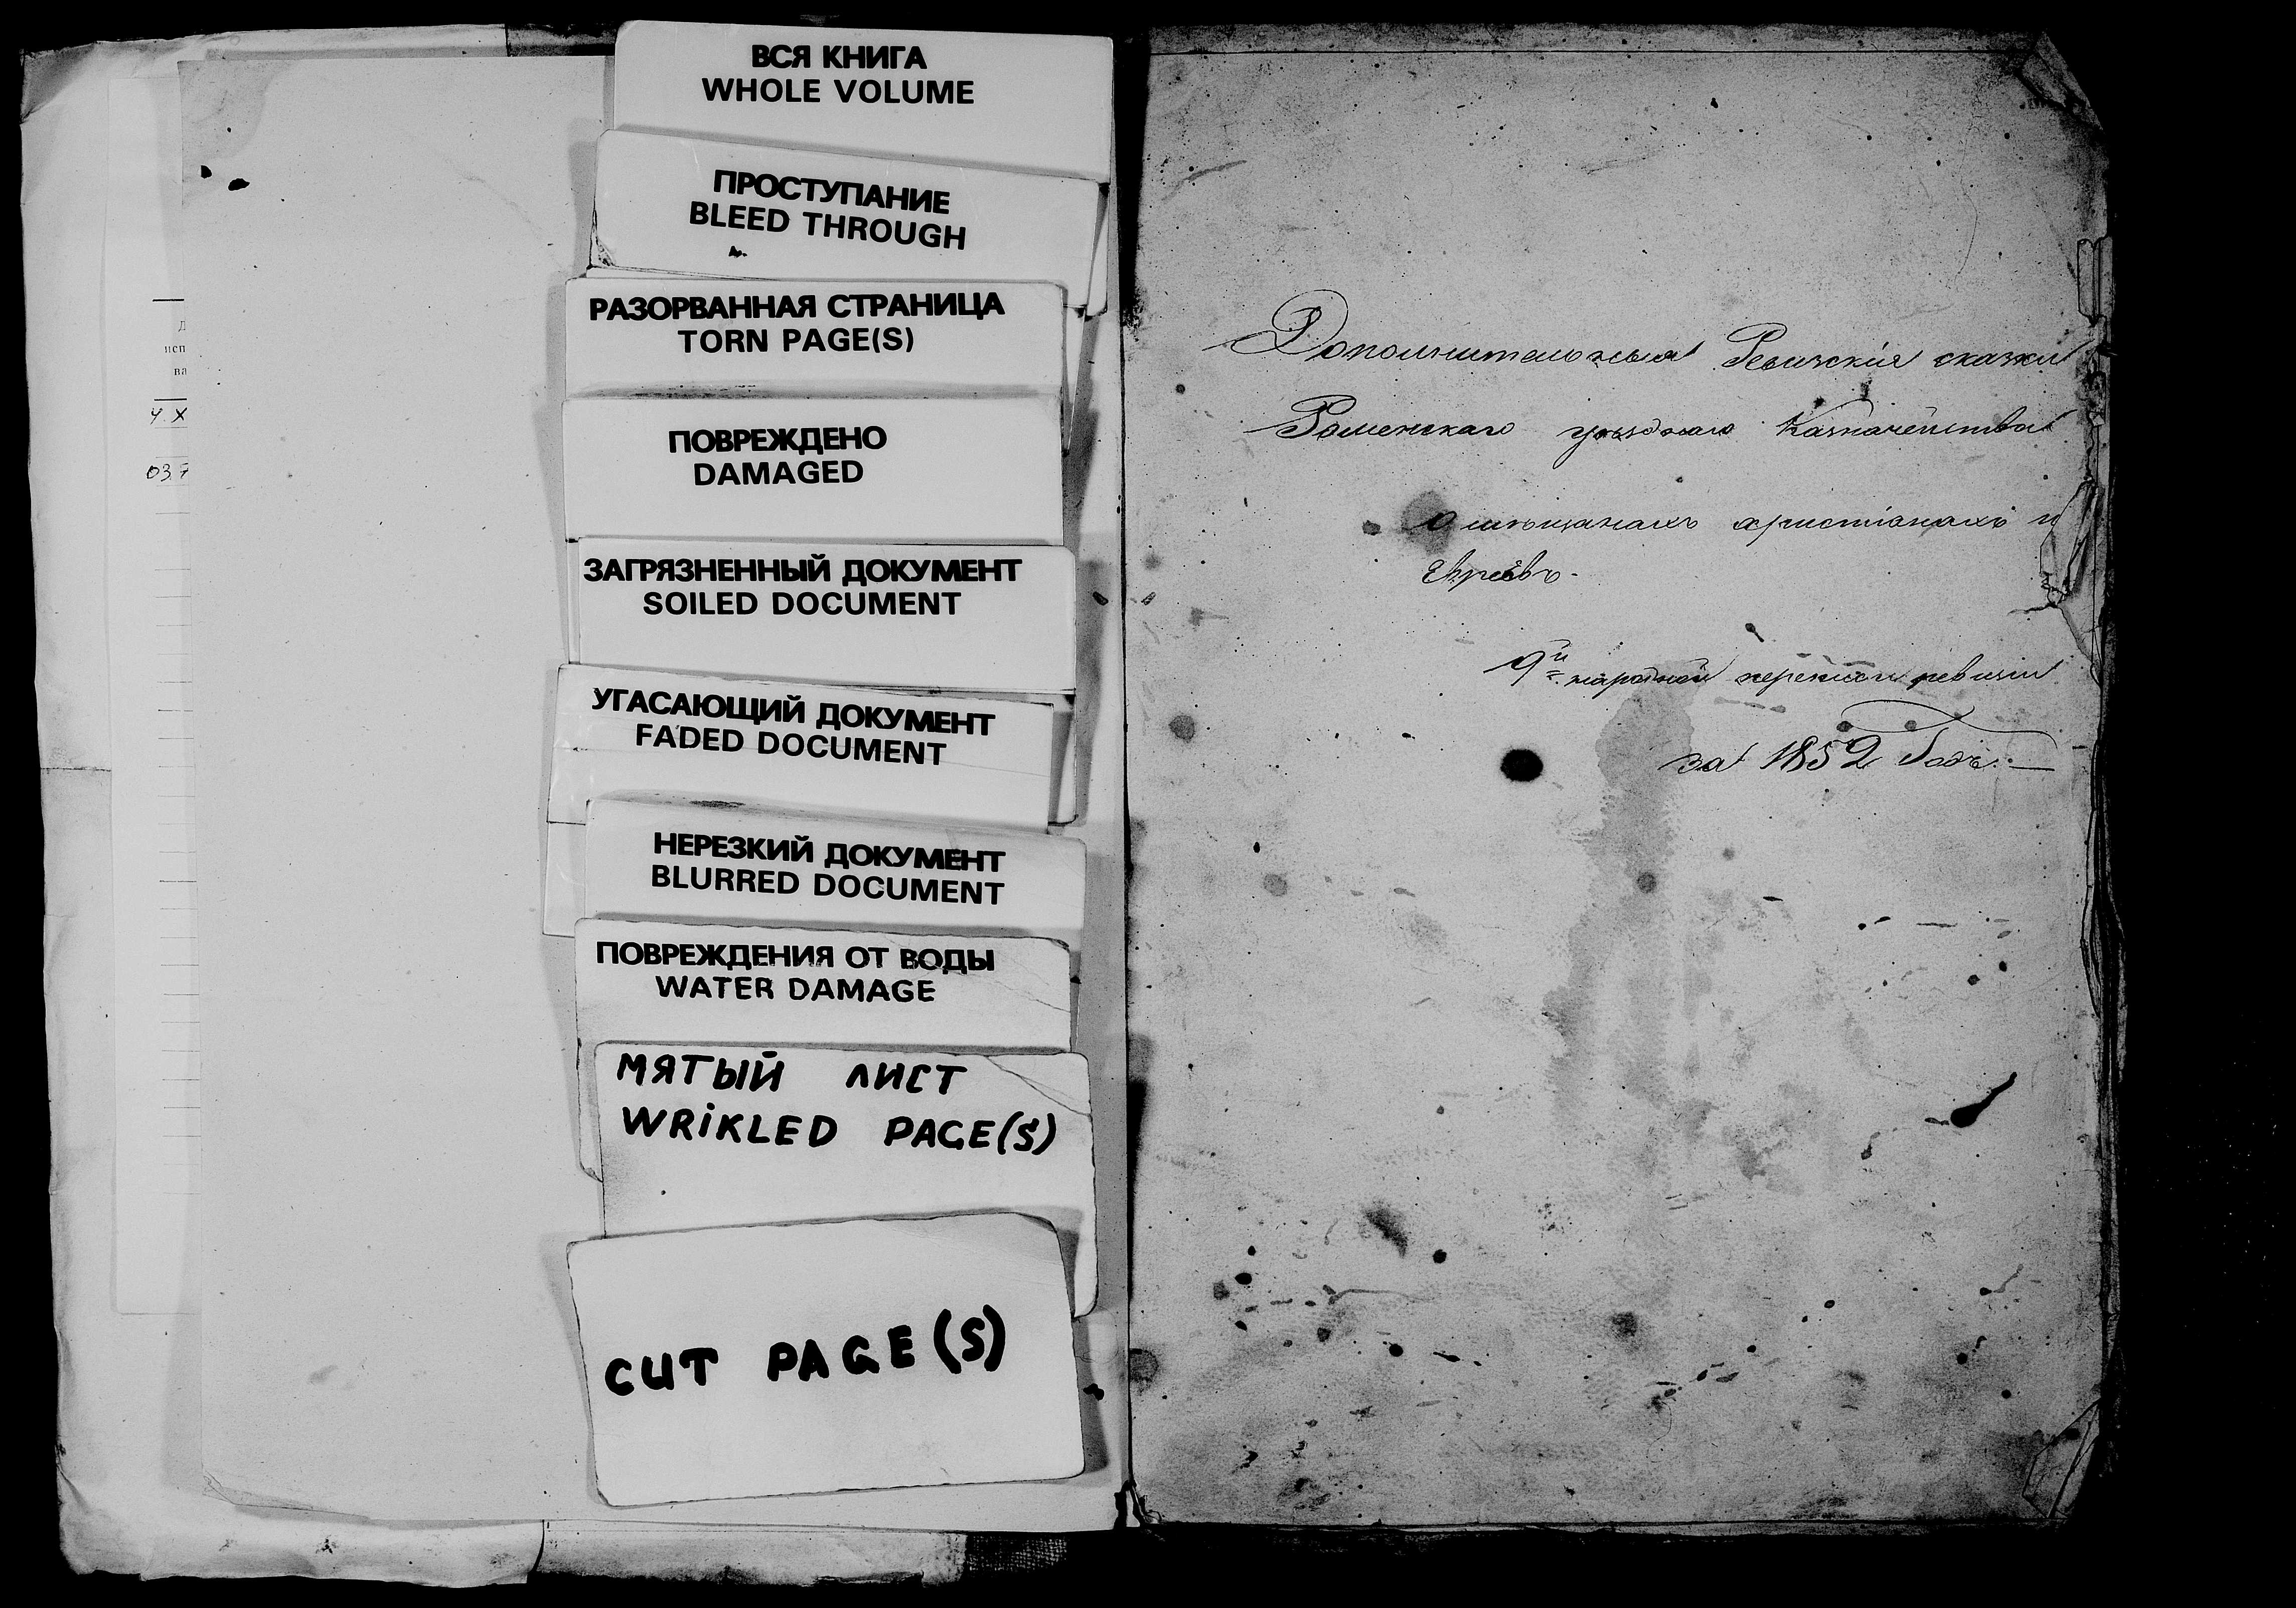 Д
исп
ва
4.X
03.7
ВСЯ КНИГА
WHOLE VOLUME
ПРОСТУПАНИЕ
BLEED THROUGH
РАЗОРВАННАЯ СТРАНИЦА
TORN PAGE(S)
ПОВРЕЖДЕНО
DAMAGED
ЗАГРЯЗНЕННЫЙ ДОКУМЕНТ
SOILED DOCUMENT
УГАСАЮЩИЙ ДОКУМЕНТ
FADED DOCUMENT
НЕРЕЗКИЙ ДОКУМЕНТ
BLURRED DOCUMENT
ПОВРЕЖДЕНИЯ ОТ ВОДЫ
WATER DAMAGE
МЯТЫЙ ЛИСТ
WRIKLED PAGE(S)
CUT PAGE(S)
Дополнительныя Ревизскія сказки
Роменскаго уѣзднаго Казначейства
О мѣщанахъ христіанахъ и
Евреевъ.
9й народной переписи ревизіи
за 1852 Годъ.